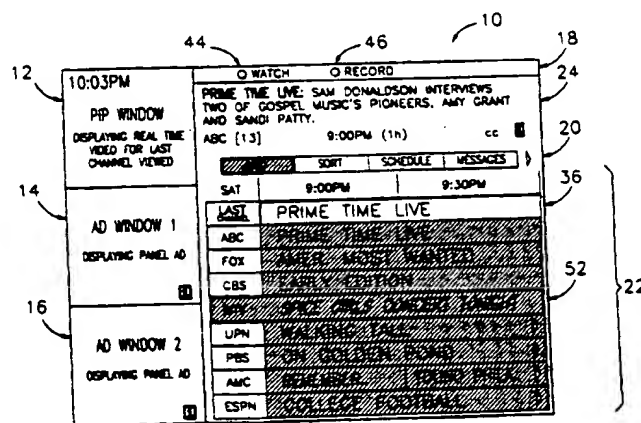 10
44
46
18
12
24
20
14
36
52
22
16
10:03PM
PIP WINDOW
DISPLAYING REAL TIME
VIDEO FOR LAST
CHANNEL VIEWED
AD WINDOW 1
DISPLAYING PANEL AD
AD WINDOW 2
DISPLAYING PANEL AD
O WATCH O RECORD
PRIME TIME LIVE: SAM DONALDSON INTERVIEWS
TWO OF GOSPEL MUSIC'S PIONEERS, AMY GRANT
AND SANDI PATTY.
ABC [13] 9:00PM (1h) cc
SORT SCHEDULE MESSAGES
SAT 9:00PM 9:30PM
LAST PRIME TIME LIVE
ABC PRIME TIME LIVE
FOX AMER. MOST WANTED
CBS EARLY EDITION
SPICE GIRLS CONCERT TONIGHT
UPN WALKING TALL
PBS ON GOLDEN POND
AMC REMEMBER. YOUNG PHILA.
ESPN COLLEGE FOOTBALL